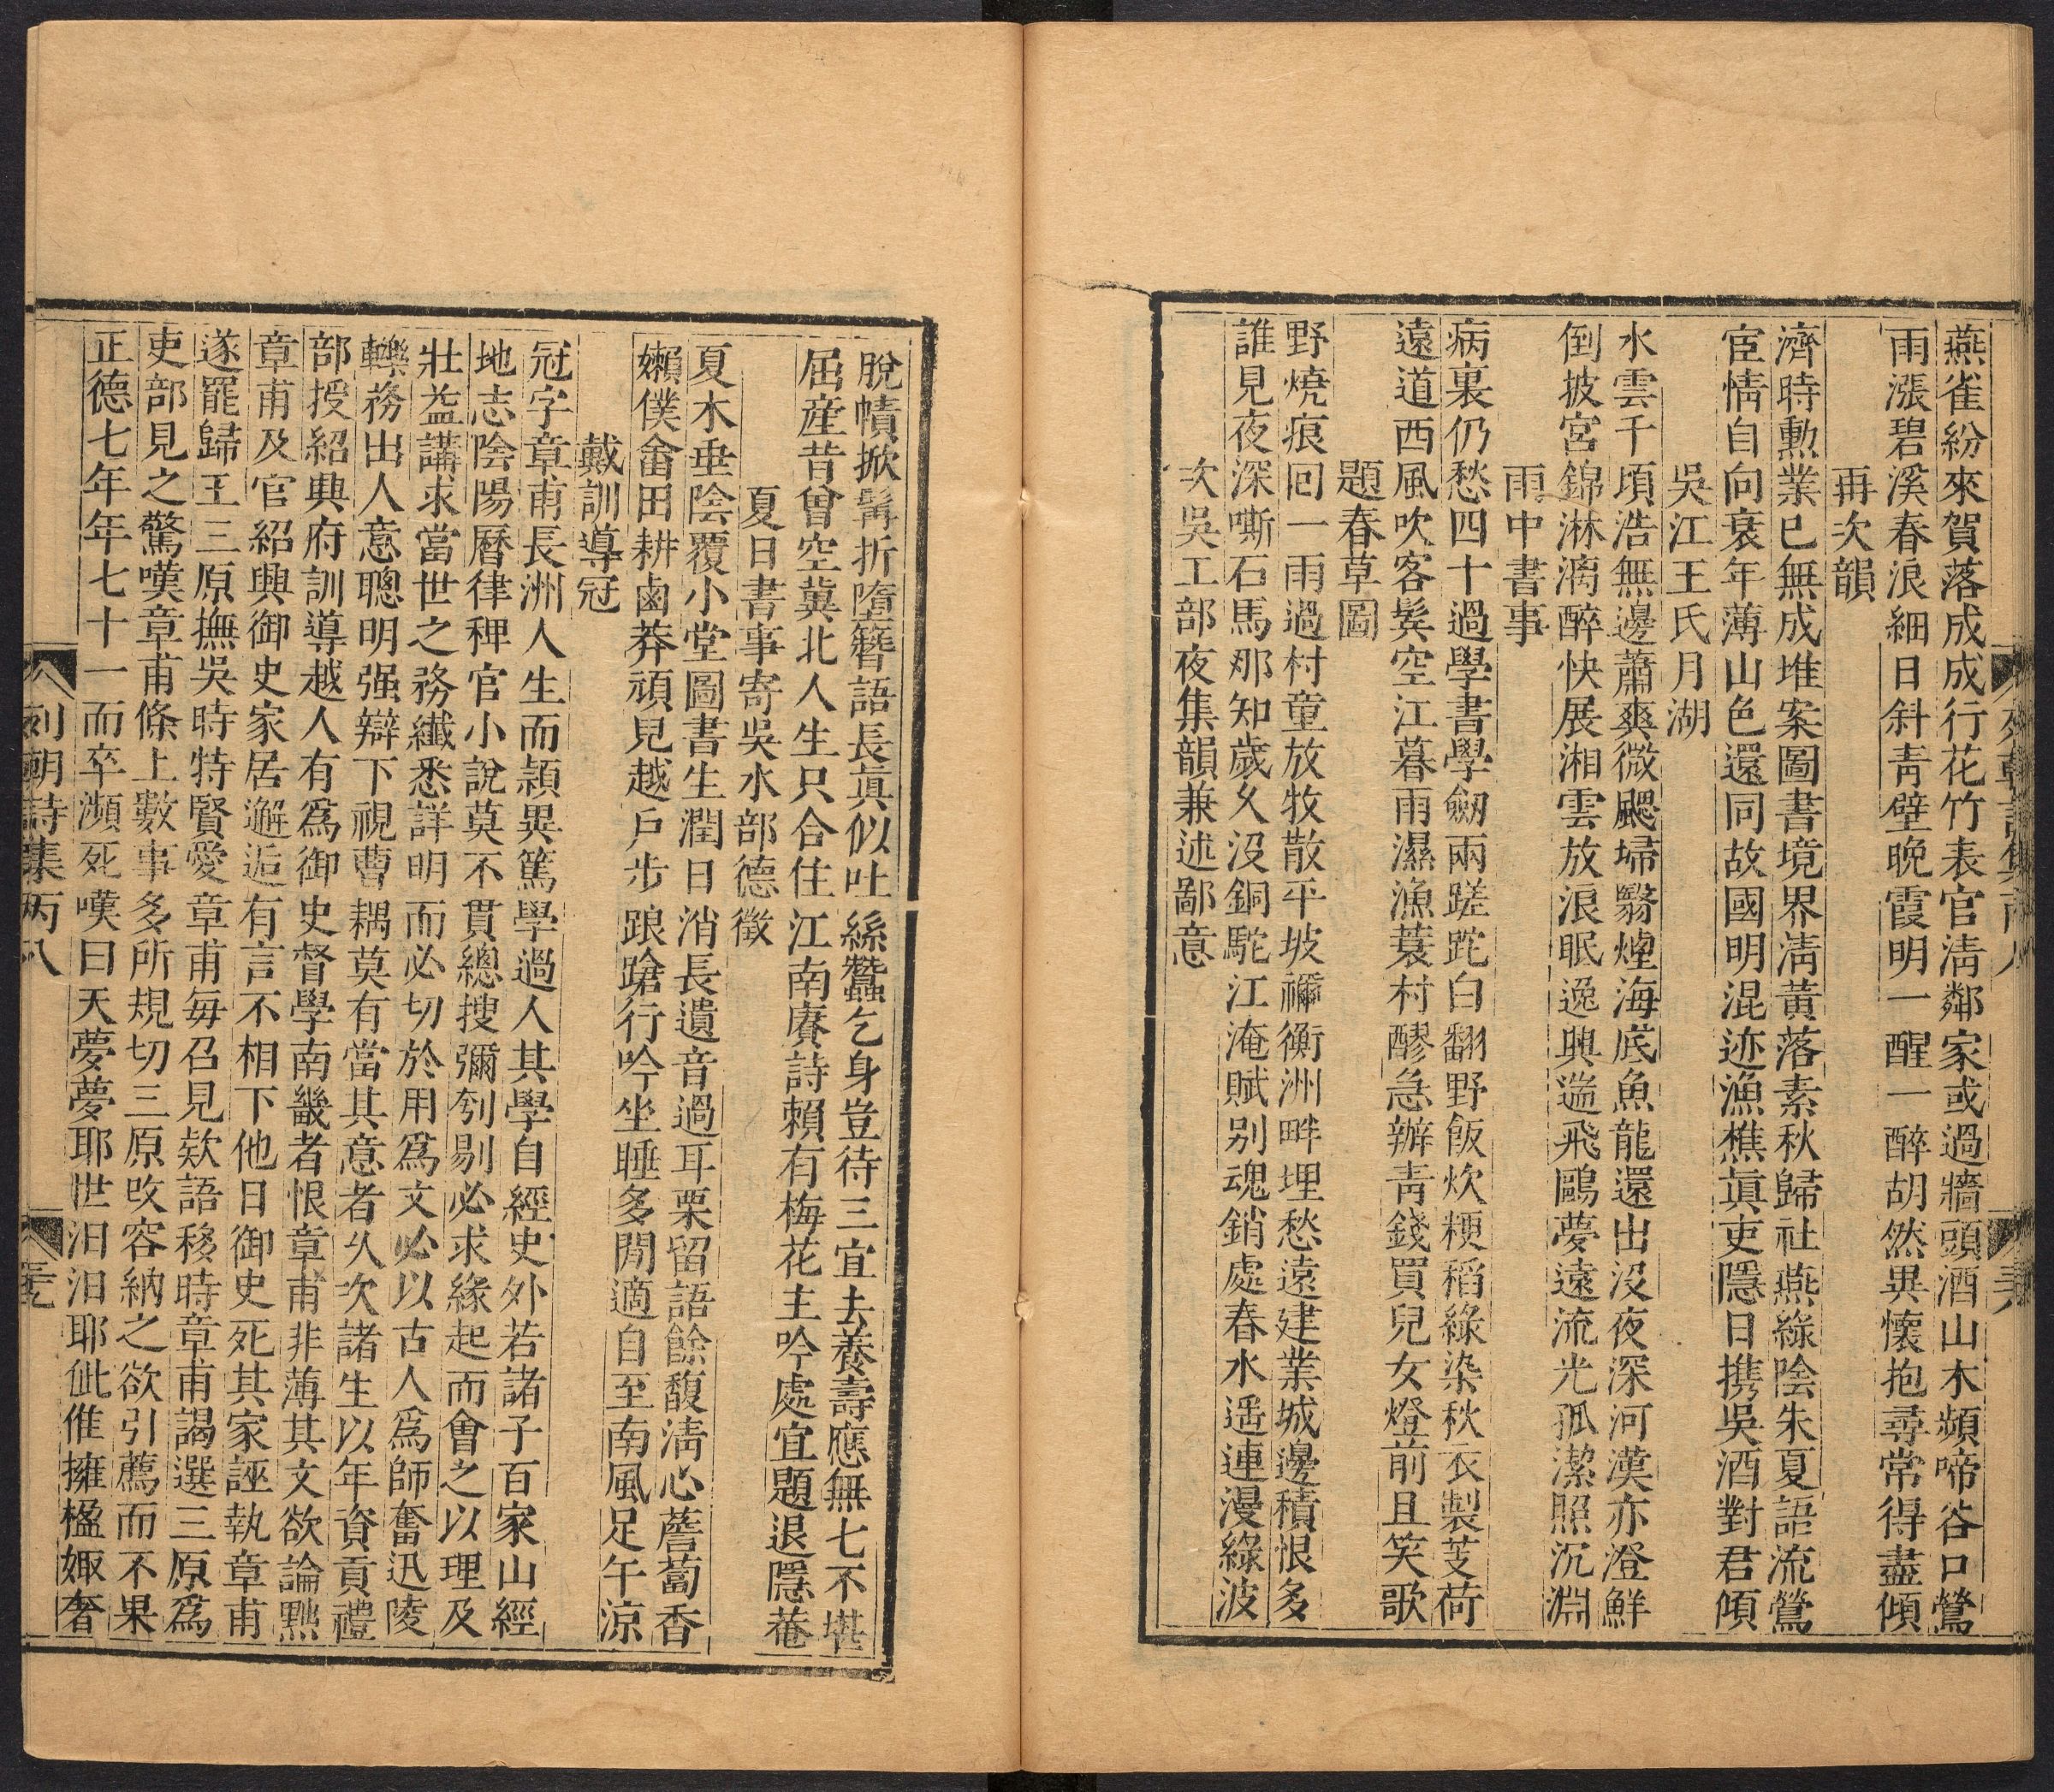 燕雀紛來賀落成成行花竹表官清鄰家或過牆頭酒山木頻啼谷口鶯
雨漲碧溪春浪細日斜靑壁晚霞明一醒一醉胡然異懷抱尋常得盡傾
再次韻
濟時勲業已無成堆案圖書境界淸黃落素秋歸社燕綠陰朱夏語流鶯
宦情自向衰年薄山色還同故國明混迹漁樵眞吏隱日携吳酒對君傾
吳江王氏月湖
水雲千頃浩無邊蕭爽微颸埽翳煙海底魚龍還出沒夜深河漢亦澄鮮
倒披宮錦淋漓醉快展湘雲放浪眠逸興遄飛鷗夢遠流光孤潔照沉淵
雨中書事
病裏仍愁四十過學書學劒兩蹉跎白翻野飯炊粳稻綠染秋衣製芰荷
遠道西風吹客鬂空江暮雨濕漁蓑村醪急辦靑錢買兒女燈前且笑歌
題春草圖
野燒痕回一雨過村童放牧散平坡禰衡洲畔埋愁遠建業城邊積恨多
誰見夜深嘶石馬那知歲久沒銅駝江淹賦别魂銷處春水遥連漫綠波
次吳工部夜集韻兼述鄙意
脫幘掀髯折墮簪語長眞似吐絲蠶乞身豈待三宜去養壽應無七不堪
屈産昔曾空冀北人生只合住江南賡詩賴有梅花主吟處宜題退隱菴
夏日書事寄吳水部德徵
夏木垂陰覆小堂圖書生潤日消長遺音過耳栗留語餘馥淸心薝蔔香
嬾僕畬田耕鹵莽頑兒越戶步踉蹌行吟坐睡多閒適自至南風足午涼
戴訓導冠
冠字章甫長洲人生而穎異篤學過人其學自經史外若諸子百家山經
地志陰陽曆律稗官小說莫不貫總搜彌刳剔必求緣起而會之以理及
壯益講求當世之務纎悉詳明而必切於用爲文必以古人爲師奮迅陵
轢務出人意聰明强辯下視曹耦莫有當其意者久次諸生以年資貢禮
部授紹興府訓導越人有爲御史督學南畿者恨章甫非薄其文欲論黜
章甫及官紹興御史家居邂逅有言不相下他日御史死其家誣執章甫
遂罷歸王三原撫吳時特賢愛章甫每召見欵語移時章甫謁選三原爲
吏部見之驚嘆章甫條上數事多所規切三原改容納之欲引薦而不果
正德七年年七十一而卒瀕死嘆曰天夢夢耶世汨汨耶仳倠擁楹娵奢
列朝詩集丙八